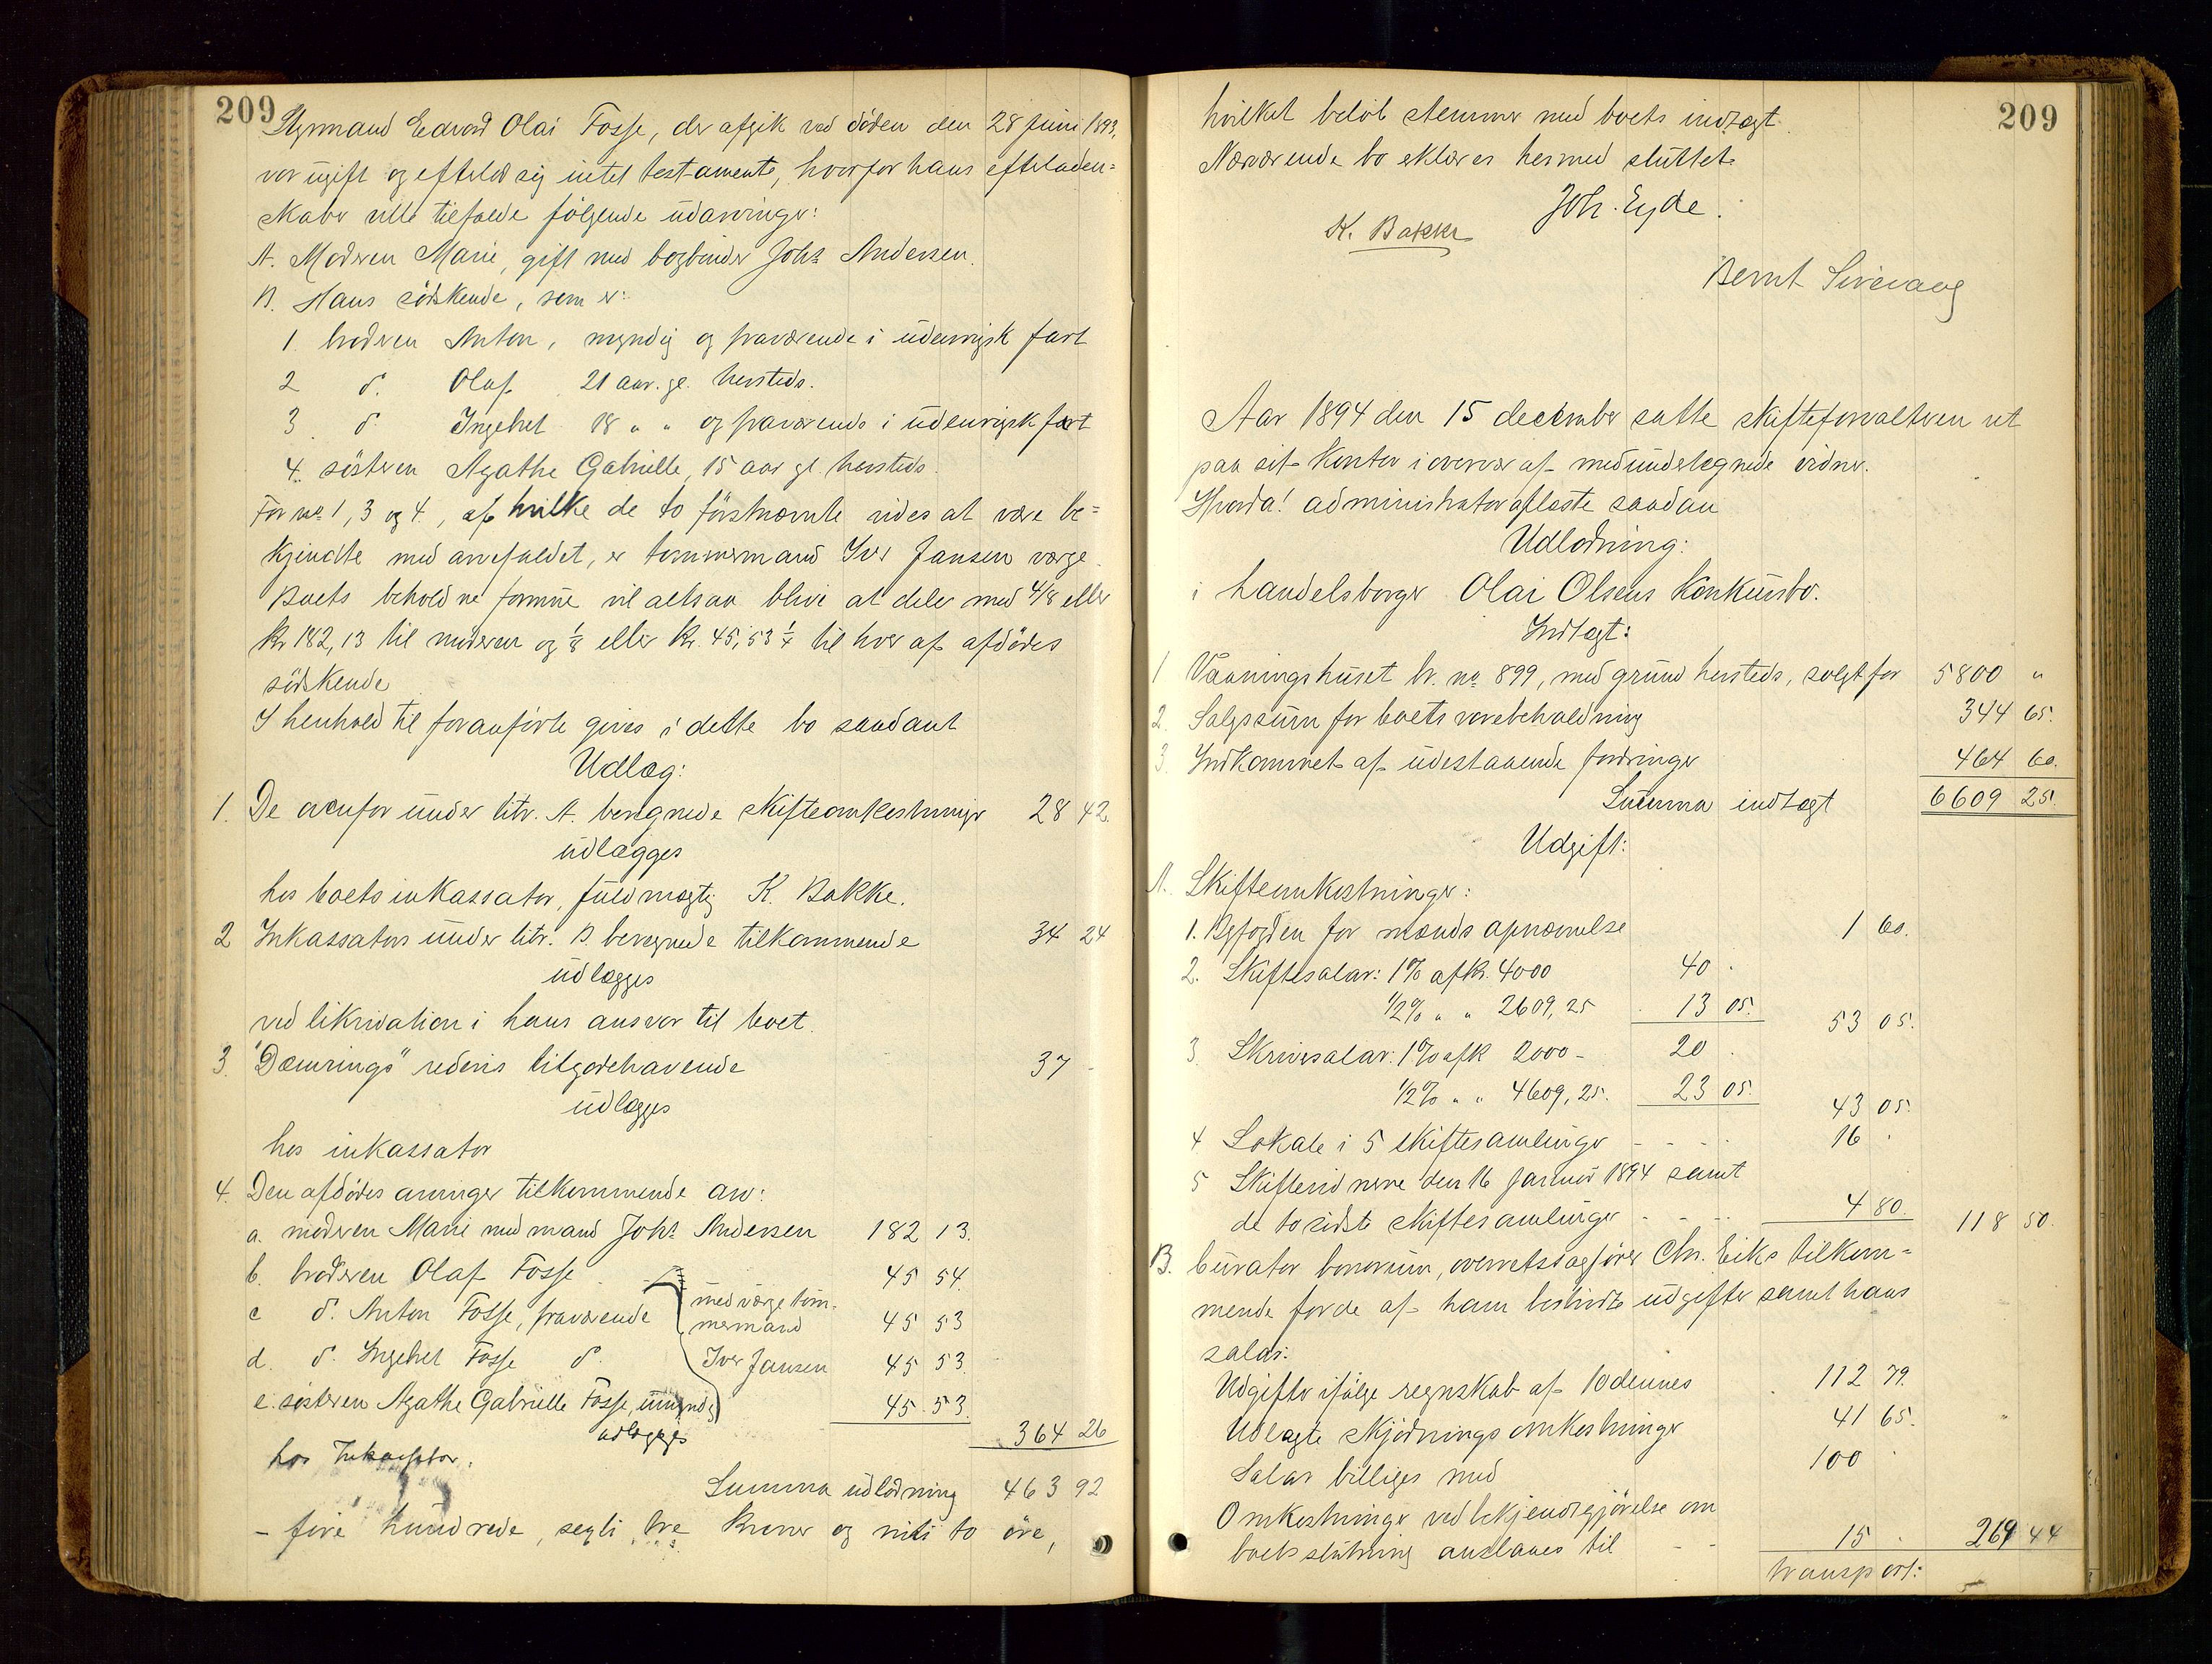 209
Styrmand Edvard Olai Fosse, der afgik ved döden den 28 Juni 1893,
var ugift og efterlod sig intet testamente, hvorfor hans efterladen=
skaber ville tilfalde fölgende udarvinger:
A. Moderen Marie, gift med bogbinder Johs Andersen.
B. Hans södskende, som er:
1. broderen Anton, myndig og fraværende i udenrigsk fart
2 d. Olaf 21 aar. gl. hersteds.
3. d Ingebret 18 " " og fraværende i udenrigsk fart
4. sösteren Agathe Gabrielle, 15 aar gl. hersteds.
For no 1, 3 og 4, af hvilke de to förstnævnte vides at være be=
kjendte med arvefaldet, er tømmermand Iver Jansen værge.
Boets beholdne formue vil altsaa blive at dele med 4/8 eller
Kr 182,13 til moderen og 1/8 eller Kr. 45,53 1/4 til hver af afdödes
södskende
I henhold til foranförte gives i dette bo saadant
Udlæg:
1. De ovenfor under litr. A. beregnede skifteomkostninger 28 42.
udlægges
hos boets inkassator, fuldmægtig K. Bakke.
2 Inkassators under litr. B. beregnede tilkommende 34 24
udlægges
ved likvidation i hans ansvar til boet.
3. "Dæmrings" rederis tilgodehavende 37 -
udlægges
hos inkassator
4. Den afdödes arvinger tilkommende arv:
a. moderen Marie med mand Johs Andersen 182 13.
b. broderen Olaf Fosse 45 54.
c d. Anton Fosse, fraværende med værge töm- 45 53
mermand
d. d. Ingebret Fosse d. Iver Jansen 45 53.
e. sösteren Agathe Gabrielle Fosse, umyndig 45 53.
udlægges 364 26
hos Inkassator.
Summa udlodning 463 92
- fire hundrede, sexti tre kroner og niti to öre,
209
hvilket belöb stemmer med boets indtægt.
Nærværende bo erklæres hermed sluttet.
Joh. Eyde.
K. Bakke
Bernt Sirevaag
Aar 1894 den 15 december satte skifteforvalteren ret
paa sit kontor i overvær af medundertegnede vidner.
Hvorda! administrator aflæste saadan
Udlodning:
i handelsborger Olai Olsens konkursbo.
Indtægt:
1 Vaaningshuset br. no 899, med grund hersteds, solgt for 5800 "
2. Salgssum for boets varebeholdning 344 65.
3. Indkommet af udestaaende fordringer 464 60.
Summa indtægt 6609 25.
Udgift:
A. Skifteomkostninger:
1. Byfogden for mænds opnævnelse 1 60.
2. Skiftesalær: 1% af kr. 4000 40 -
1/2% " " 2609,25 13 05. 53 05.
3. Skriversalær: 1% af kr 2000 - 20 .
1/2% " " 4609,25. 23 05. 43 05.
4 Lokale i 5 skiftesamlinger - - - 16 .
5 Skiftevidnerne den 16 Januar 1894 samt
de to sidste skiftesamlinger - - - 4 80. 118 50.
B. Curator bonorum, overretssagförer Chr. Eiks tilkom=
mende for de af ham bestridte udgifter samt hans
salær:
Udgifter ifölge regnskab af 10 dennes 112 79.
Udlagte skjödningsomkostninger 41 65.
Salær billiges med 100 .
Omkostninger ved bekjendtgjörelse om
boets slutning anslaaes til - - 15 . 269 44
transport: